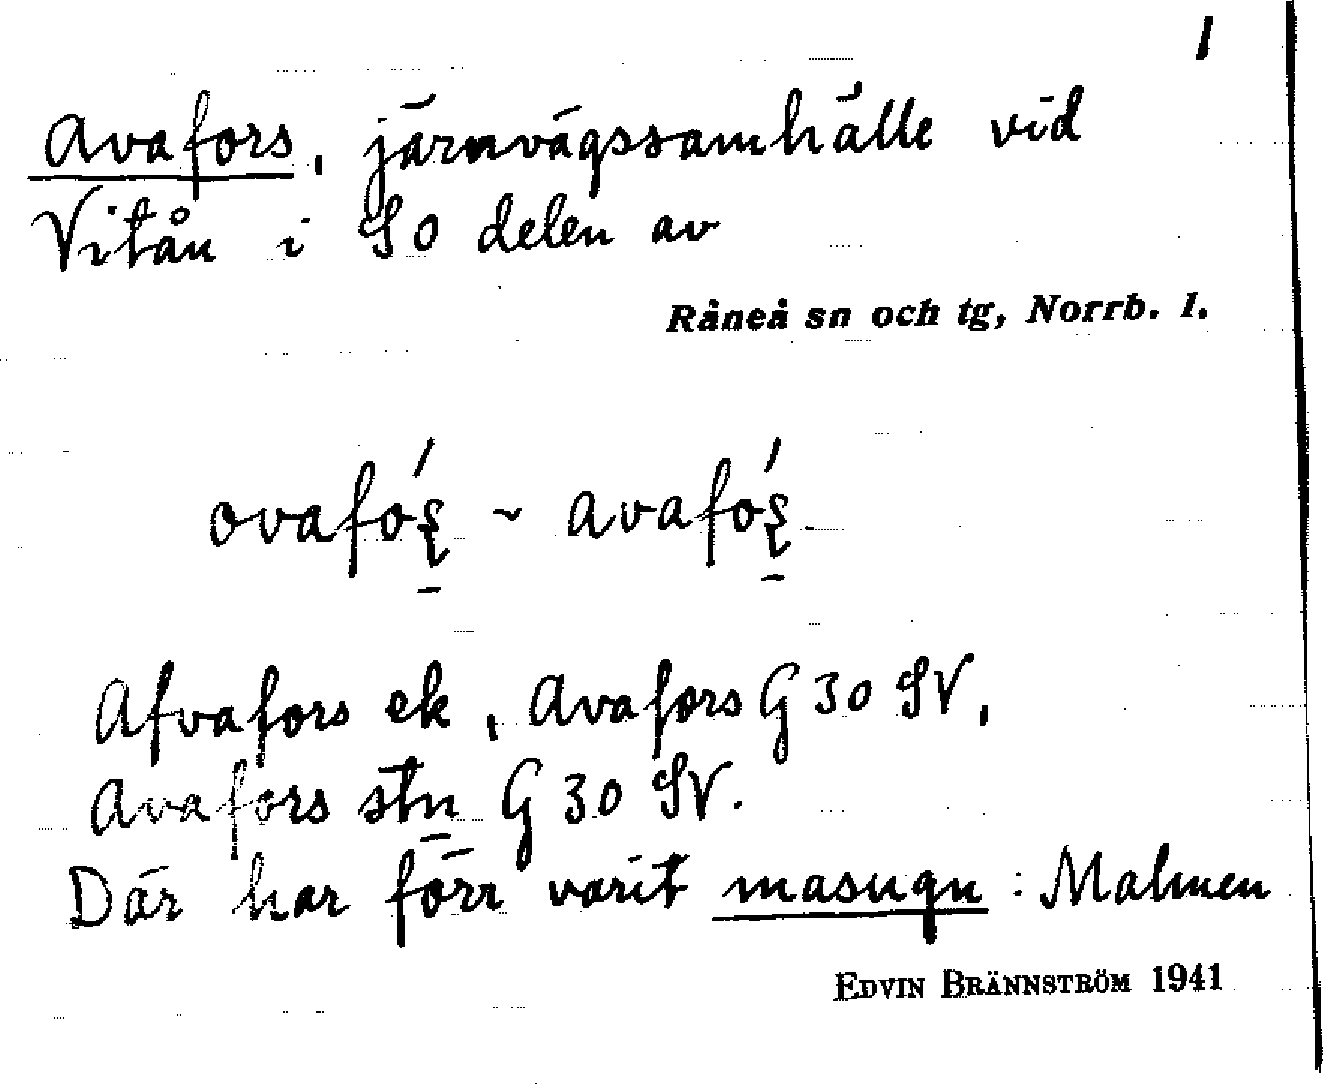 1
Avafors, järnvägssamhälle vid
Vitån i SO delen av
Råneå sn och tg, Norrb. l.
ovafóʂ ~ avafóʂ
Afvafors ek, Avafors G 30 SV,
Avafors stn G 30 SV.
Där har förr varit masugn : Malmen
EDVIN BRÄNNSTRÖM 1941